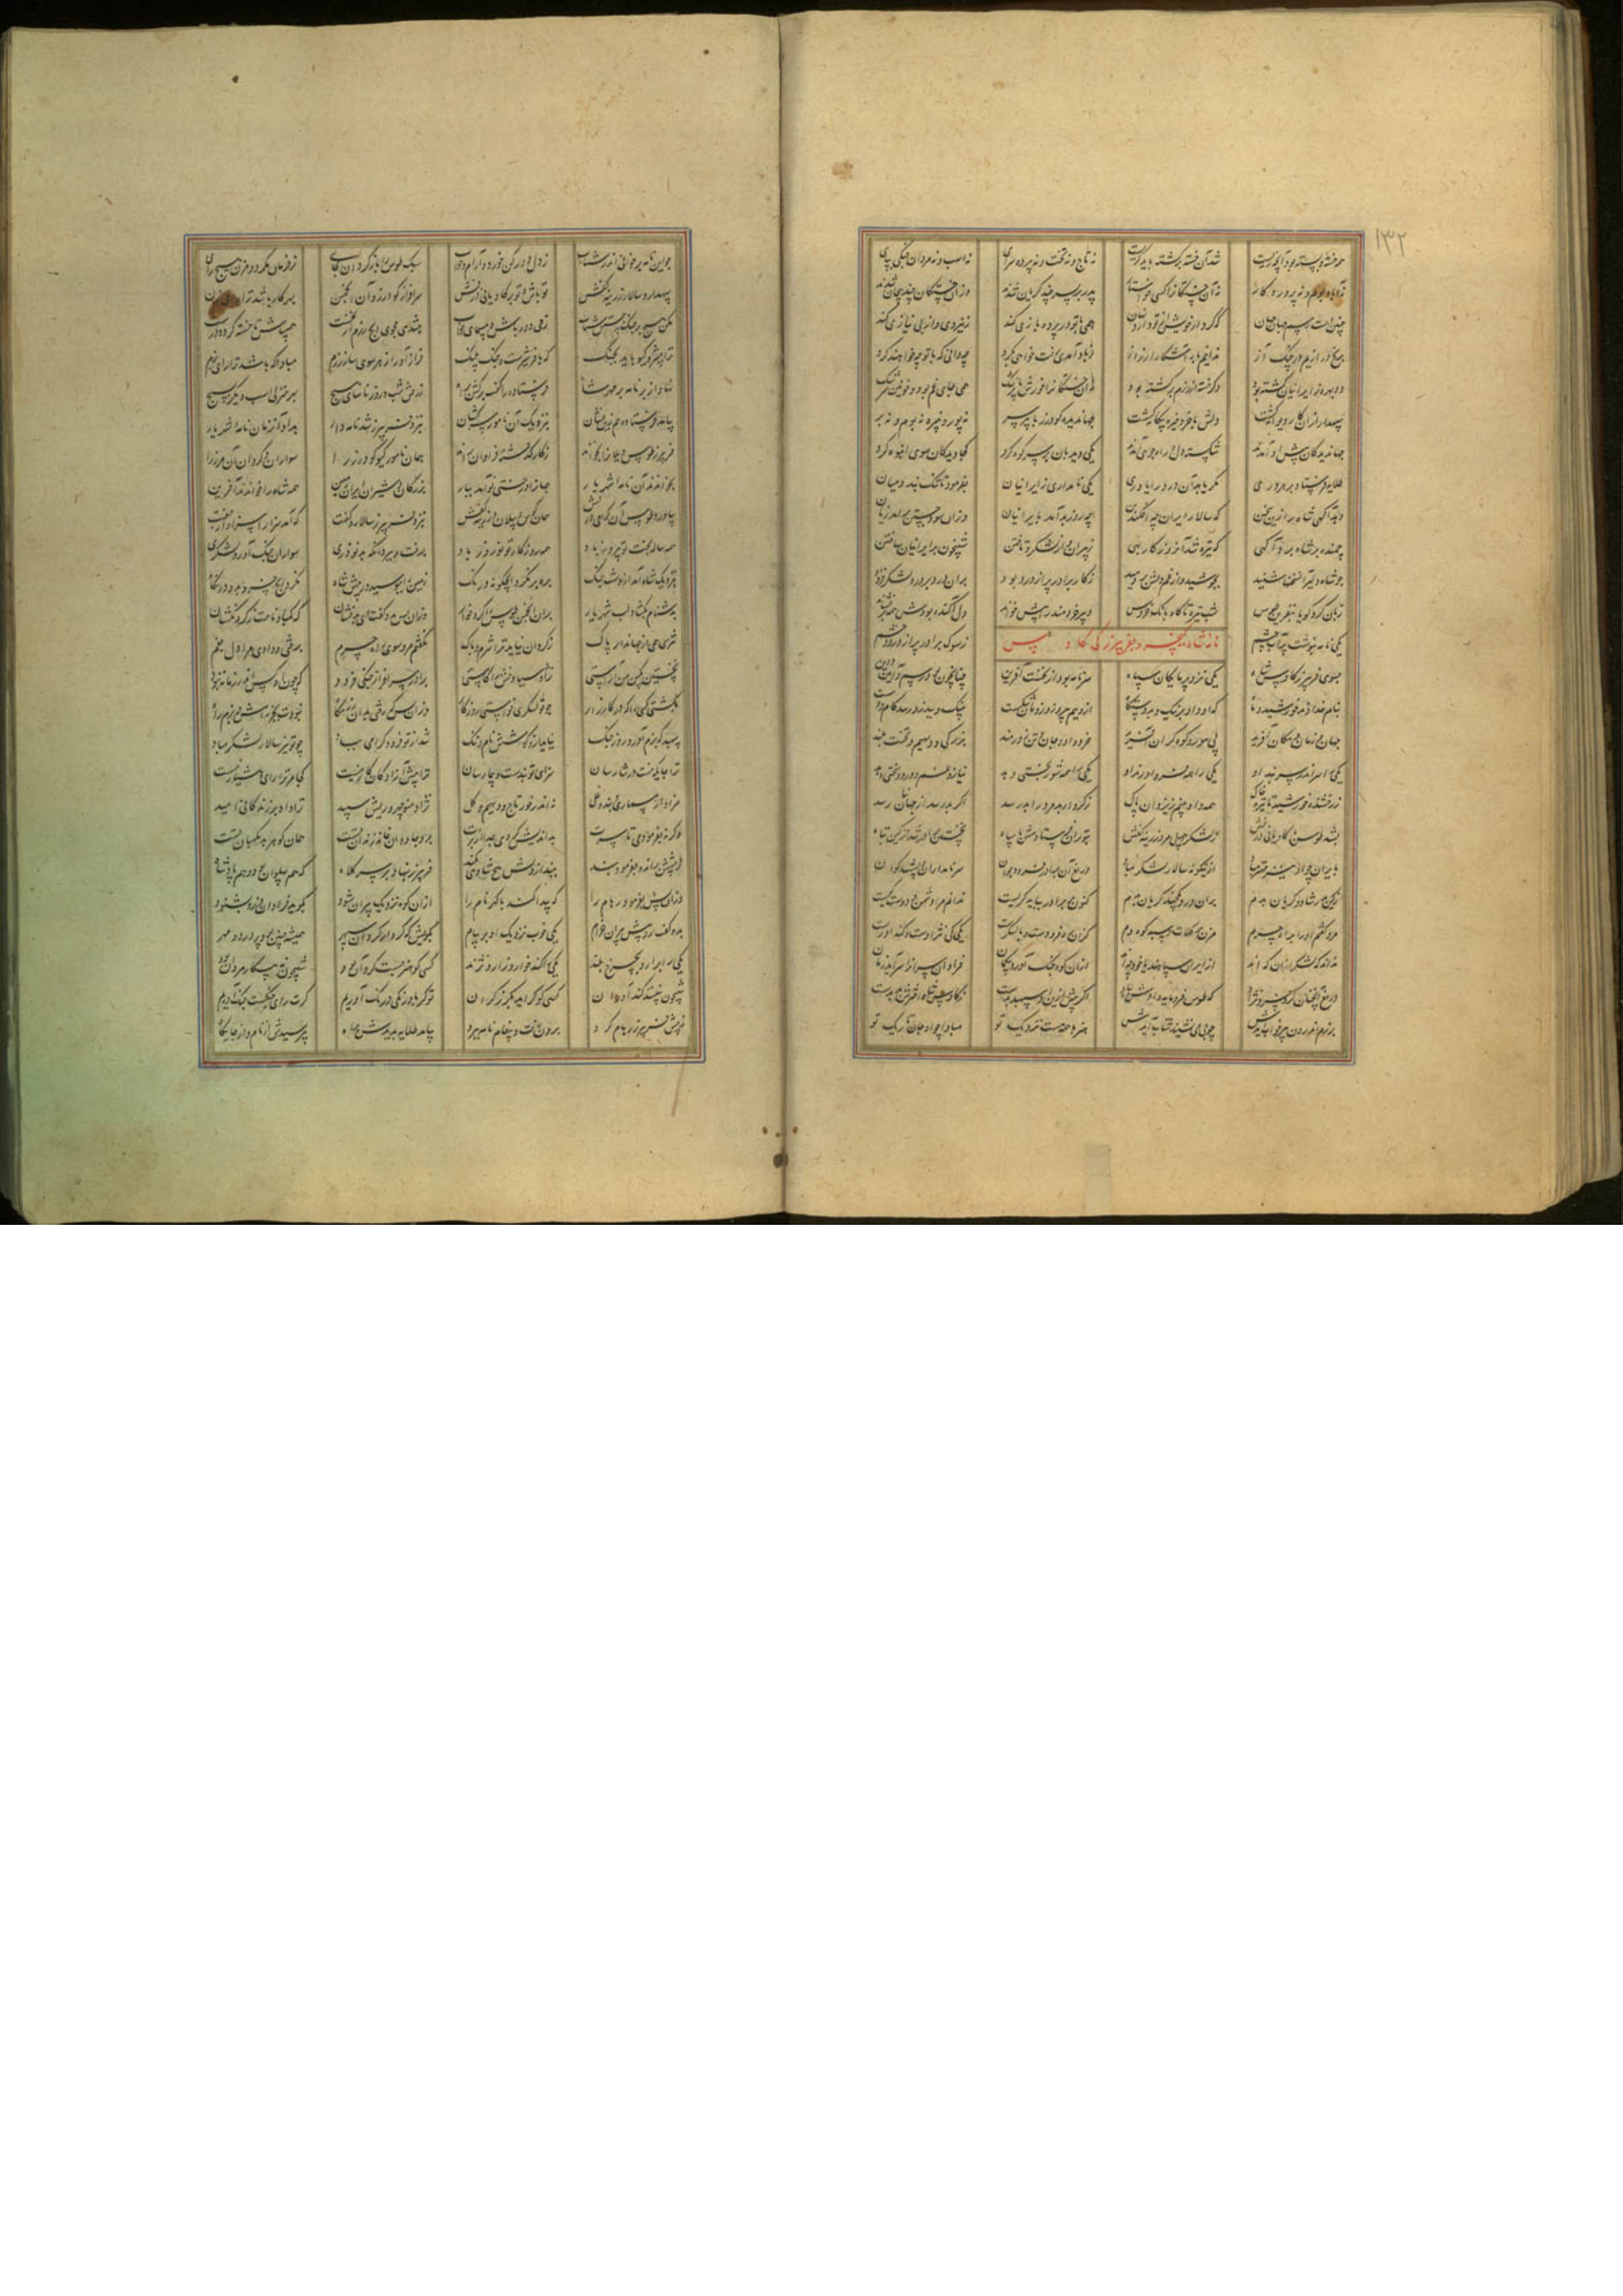 ۱۳۲
همه خسته و بسته بود آنچه زیست شد آن خسته بر کشته باید گریست نه تاج و نه تخت و نه پرده سرای نه اسب و نه مردان جنگی بپای
نه آباد بوم و نه پرورده کار نه آن خستگانرا کسی خواستار پدر بر پسر چند گریان شده وزان خستگان چند بریان شده
چنین است رسم جهان جهان که کردار خویش از تو دارد نهان همی با تو در پرده بازی کند ز تیزی و از بی نیازی کند
برنج درازیم و در چنگ آز ندانیم باز آشکارا ز راز ز باد آمدی رفت خواهی بگرد چه دانی که با تو چه خواهند کرد
دو بهره ز ایرانیان کشته بود دگر خسته از رزم برگشته بود نه آن خستگانرا خورش نه پزشک همی جای غم بود و خونین سرشک
سپهدار ازان کار دیوانه گشت دلش با خرد خیره بیگانه گشت جهاندیده گودرز با پیر سر نه پور و نبیره نه بوم و نه بر
جهاندیدگان پیش او آمدند شکسته دل و راه جوی آمدند یکی دیده بان بر سر کوه کرد کجا دیدگان سوی انبوه کرد
طلایه فرستاد بر هر دری مگر یابد آن درد را یاوری یکی نامداری ز ایرانیان بفرمود تا تنگ بندد میان
دهد آگهی شاه را زین سخن که سالار ایران چه افکند بن چه روز بد آمد بایرانیان وزان سود جستن سرآمد زیان
رونده بر شاه برد آگهی که تیره شد آن روزگار بهی ز پیران و از لشکر و تاختن شبیخون بر ایرانیان ساختن
چو شاه دلیر آن سخنها شنید بجوشید وز غم دلش بردمید ز کار برادر پر از درد بود بران درد بر درد لشکر فزود
زبان کرد گویا بنفرین طوس شب تیره تا گاه بانگ خروس دبیر خردمند را پیش خواند دل آکنده بودش همه برفشاند
یکی نامه بنوشت پر آب چشم ز سوک برادر پر از درد و خشم
نامه شاه کیخسرو بفریبرز کی کاوس
بسوی فریبرز کاوس شاه یکی نزد پرمایگان سپاه سر نامه بود از نخست آفرین چنانچون بود رسم آیین و دین
بنام خداوند خورشید و ماه که او داد بر نیک و بد دستگاه ازویست پیروزی و زو شکست بنیک و ببد زو رسد کام و دست
جهان و زمان و مکان آفرید پی مور و کوه گران آفرید خرد داد و جان و تن زورمند بزرگی و دیهیم و تخت بلند
یکی را سر اندر بند او یکی را همه فر و اورند او یکی را همه شوربختی دهد نیاز و غم و درد و سختی دهد
ز رخشنده خورشید تا تیره خاک همه داد بینم ز یزدان پاک ز کردار بد مرد را بد رسد اگر بد رسد از جهان رسد
بشد طوس با کاویانی درفش ز لشکر چهل مرد زرینه کفش بتوران فرستادمش با سپاه نخستین برادر شد از کین تباه
بایران چو او هیچ مهتر مباد ازینگونه سالار لشکر مباد دریغ آن برادر فرود جوان سر نامداران و پشت گوان
ز خون پدر شاد و گریان بدم بران درد یکچند گریان بدم کنون بر برادر بباید گریست ندانم مرا دشمن و دوست کیست
مرو گفتم او را براه چرم مزن بر کلات و سپدکوه دم کزان ره فرودست و با لشکرست یکی کی نژادست و کنداورست
نداند که لشکر ازان که اند از ایران سپاهند یا خود چه اند ازان کوه جنگ آورد بیگمان فراوان سران را سرآید زمان
دریغ آنچنان گرد خسرو نژاد که طوس فرومایه دادش بباد اگر پیش ازین او سپهبد بدست ز کاوس شاه اختر بد بدست
برزم اندرون نیز خواب آیدش چو بی می نشیند شتاب آیدش هنرها همه هست نزدیک تو مبادا چو او جان تاریک تو
چو این نامه برخوانی اندر شتاب ز دل دور کن خورد و آرام و خواب سبک طوس را باز گردان بجای ز فرمان مگرد و مزن هیچ رای
سپهدار و سالار زرینه کفش تو باش و تو بر کاویانی درفش سرافراز گودرز ازان انجمن بهر کار باشد ترا رای زن
مکن هیچ بر جنگ جستن شتاب ز می دور باش و مپیمای خواب بتندی مجوی ایچ رزم از نخست همی باش تا خسته گردد درست
ترا پیشرو گیو باید بجنگ که با فر و برزست و چنگ پلنگ فراز آور از هر سوی ساز رزم مبادا که باشد ترا رای بزم
نهاد از بر نامه بر مهر شاه فرستاده را گفت برکش براه ز رفتن شب و روز ناسای هیچ بهر منزلی اسب دیگر بسیچ
بیامد فرستاده هم زین نشان بنزدیک آن نامور سرکشان بنزد فریبرز شد نامه دار بداد آن زمان نامه شهریار
فریبرز طوس و یلانرا بخواند ز کار گذشته فراوان براند همان نامور گیو و گودرز را سواران و گردان آن مرز را
چو برخواند آن نامه شهریار جهانرا درختی نو آمد ببار بزرگان و شیران ایران زمین همه شاه را خواندند آفرین
بیاورد طوس آن کیی درفش همان کوس و پیلان و زرینه کفش بنزد فریبرز سالار و گفت که آمد سزا را سزاوار جفت
همه ساله بخت تو پیروز باد همه روزگار تو نوروز باد برفت و ببرد آنکه بد نوذری سواران جنگ آور و لشکری
بنزدیک شاه آمد از دشت جنگ بره بر نکرد ایچگونه درنگ زمین را ببوسید در پیش شاه نکرد ایچ خسرو بدو در نگاه
بدشنام بگشاد لب شهریار بران انجمن طوس را کرد خوار وزان پس بدو گفت کای بدنشان که گم باد نامت ز گردنکشان
نترسی همی از جهاندار پاک ز گردان نیامد ترا شرم و باک نگفتم مرو سوی راه چرم برفتی و دادی مرا دل بغم
نخستین بکین من آراستی نژاد سیاوخش را کاستی برادر سرافراز جنگی فرود
بکشتی کسی را که در کارزار چو تو لشکری خواستی روزگار وزان پس که رفتی بدان رزمگاه نبودت بجز رامش و بزم
سپهبد که بزم آورد روز جنگ نیاید ازو کوشش نام و ننگ شد از تو فرود گرامی بباد چو تو نیز سالار لشکر مباد
ترا جایگه نیست در شارسان سزای تو بندست و بیمارسان ترا پیش آزادگان کار نیست کجا مر ترا رای هشیار نیست
سزاوار مسماری و بند و غل نه اندر خور تاج و دیهیم و گل نژاد منوچهر و ریش سپید ترا داد بر زندگانی امید
وگرنه بفرمودمی تا سرت بداندیش کردی جدا از برت برو جاودان خانه زندان تست همان گوهر بد نگهبان تست
ز پیشش براند و بفرمود بند ببند از دلش بیخ شادی بکند فریبرز بنهاد بر سر کلاه که هم پهلوان بود و هم پادشاه
وزان پس بفرمود رهام را که پیدا کند با گهر نام را ازان کوه نزدیک پیران شود بگوید فراوان وزو بشنود
بدو گفت رو پیش پیران خرام یکی خوب نزدیک او بر پیام بگویش که کردار گردان سپهر همیشه چنین بود پر درد و مهر
یکی را برارد بچرخ بلند یکی را کند خوار و زار و نژند کسی کو هنر جست گردان بود شبیخون نه پیکار مردان بود
شبیخون نسازند کنداوران کسی کو گراید بگرز گران تو گر با درنگی درنگ آوریم گرت رای جنگست جنگ آوریم
ز پیش فریبرز رهام گرد برون رفت و پیغام و نامه ببرد بیامد طلایه بدیدش براه بپرسیدش از نام و از جایگاه